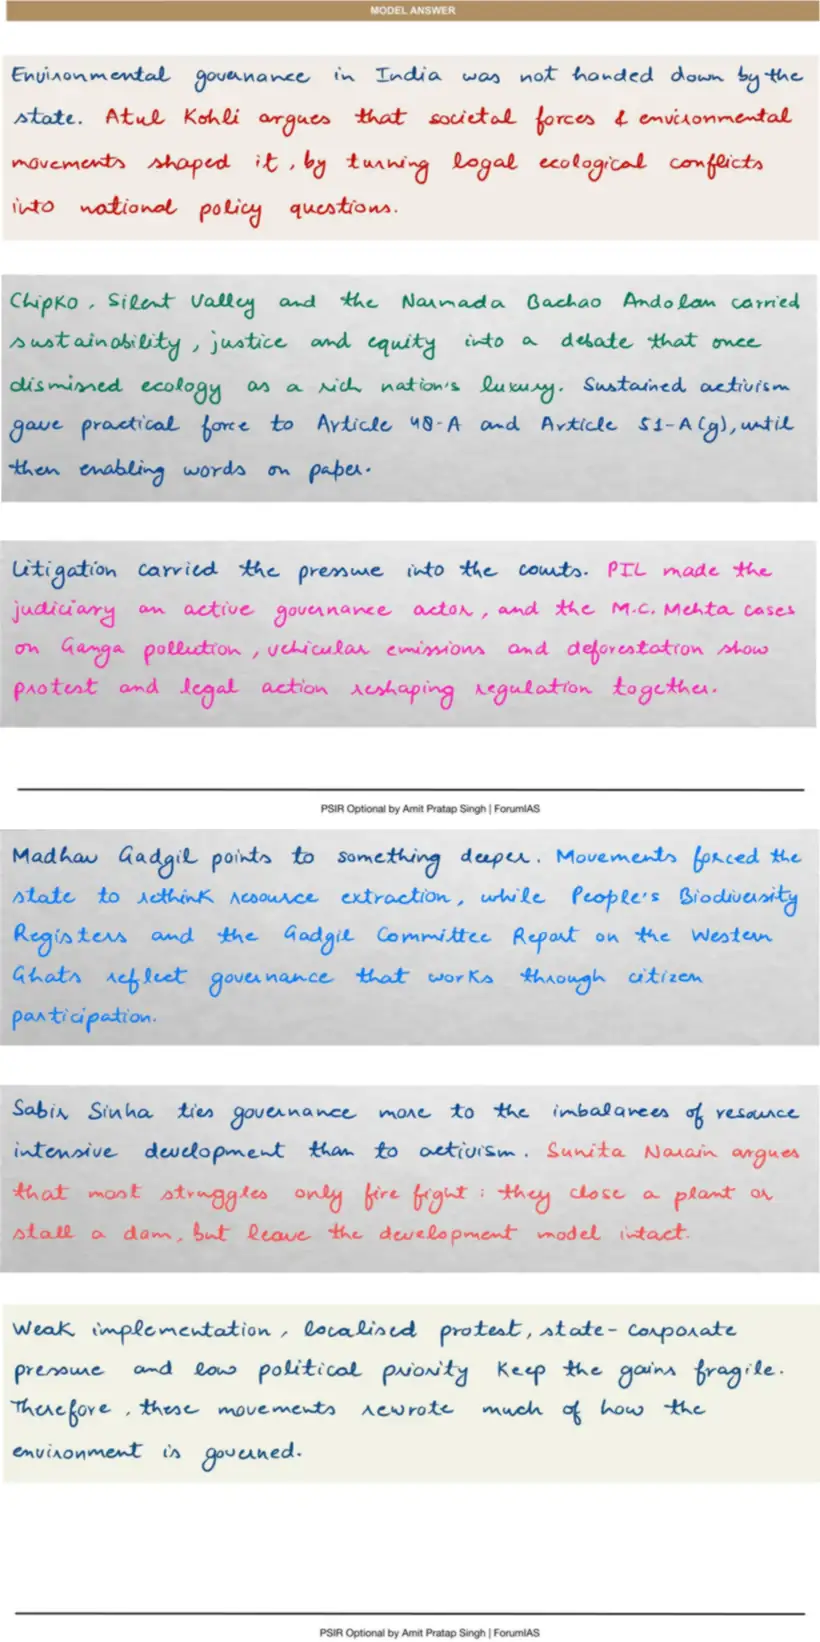 MODEL ANSWER
Environmental governance in India was not handed down by the
state. Atul Kohli argues that societal forces & environmental
movements shaped it, by turning logal ecological conflicts
into national policy questions.
Chipko, Silent Valley and the Narmada Bachao Andolan carried
sustainability, justice and equity into a debate that once
dismissed ecology as a rich nation's luxury. Sustained activism
gave practical force to Article 48-A and Article 51-A(g), until
then enabling words on paper.
Litigation carried the pressure into the courts. PIL made the
judiciary an active governance actor, and the M.C. Mehta cases
on Ganga pollution, vehicular emissions and deforestation show
protest and legal action reshaping regulation together.
PSIR Optional by Amit Pratap Singh | ForumIAS
Madhav Gadgil points to something deeper. Movements forced the
state to rethink resource extraction, while People's Biodiversity
Registers and the Gadgil Committee Report on the Western
Ghats reflect governance that works through citizen
participation.
Sabir Sinha ties governance more to the imbalances of resource
intensive development than to activism. Sunita Narain argues
that most struggles only fire fight: they close a plant or
stall a dam, but leave the development model intact.
Weak implementation, localised protest, state-corporate
pressure and low political priority keep the gains fragile.
Therefore, these movements rewrote much of how the
environment is governed.
PSIR Optional by Amit Pratap Singh | ForumIAS